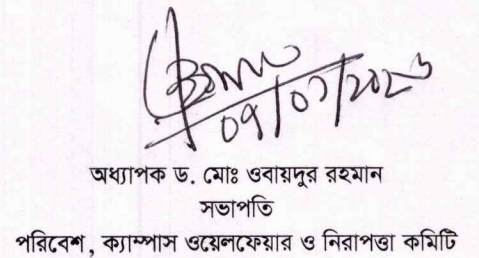 ০৭/০৭/২০২৬
অধ্যাপক ড. মোঃ ওবায়দুর রহমান
সভাপতি
পরিবেশ, ক্যাম্পাস ওয়েলফেয়ার ও নিরাপত্তা কমিটি